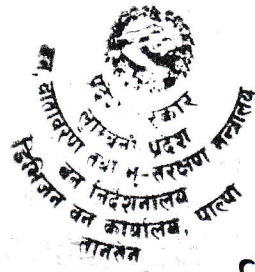 प्रदेश सरकार
लुम्बिनी प्रदेश
वन, वातावरण तथा भू-संरक्षण मन्त्रालय
वन निर्देशनालय
डिभिजन वन कार्यालय, पाल्पा
तानसेन